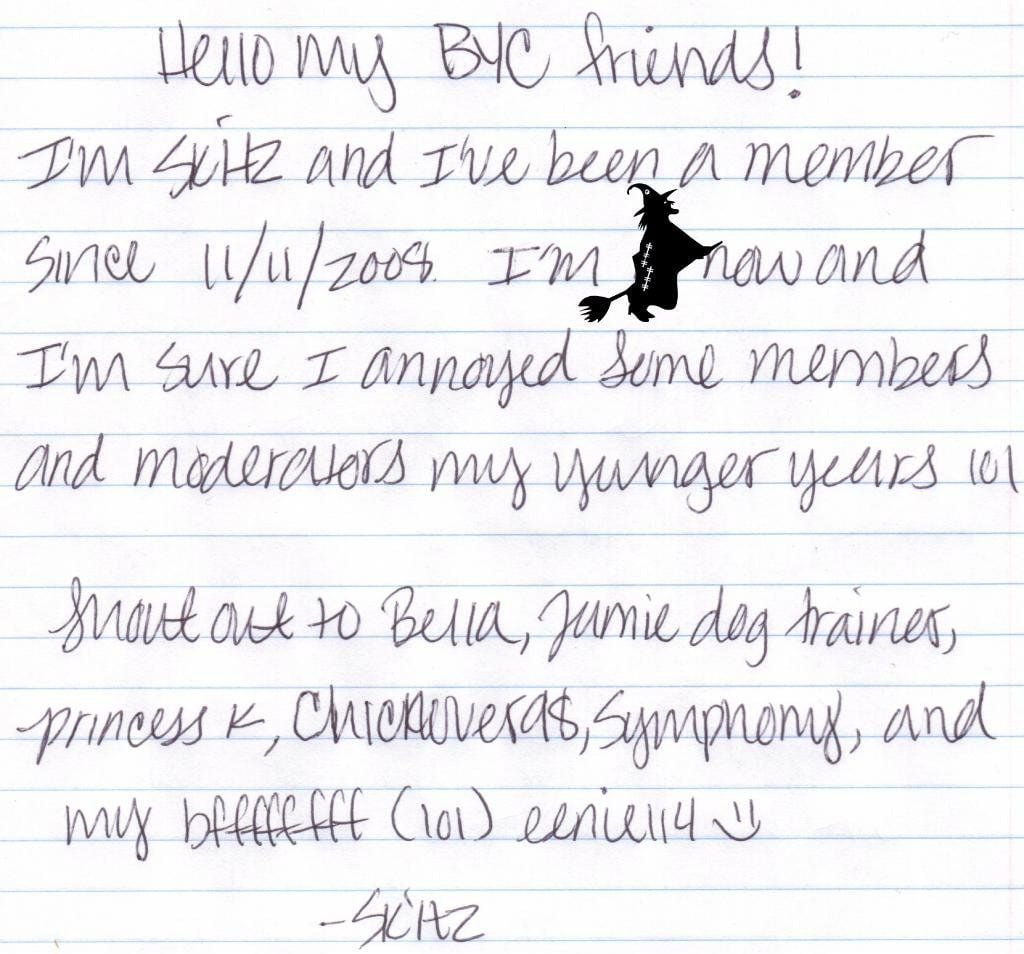 Hello my BYC friends!
I'm Skitz and I've been a member
since 11/11/2008. I'm now and
I'm sure I annoyed some members
and moderators my yunger years lol
Shout out to Bella, Jamie dog trainer,
princess k, Chickluver98, Symphony, and
my bffffffff (lol) eenie114
-Skitz